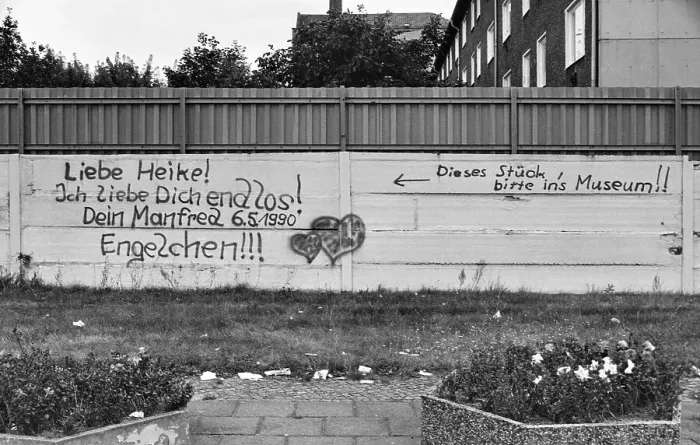 Liebe Heike!
Ich liebe Dich endlos!
Dein Manfred 6.5.1990
Engelchen!!!
← Dieses Stück
bitte in's Museum!!